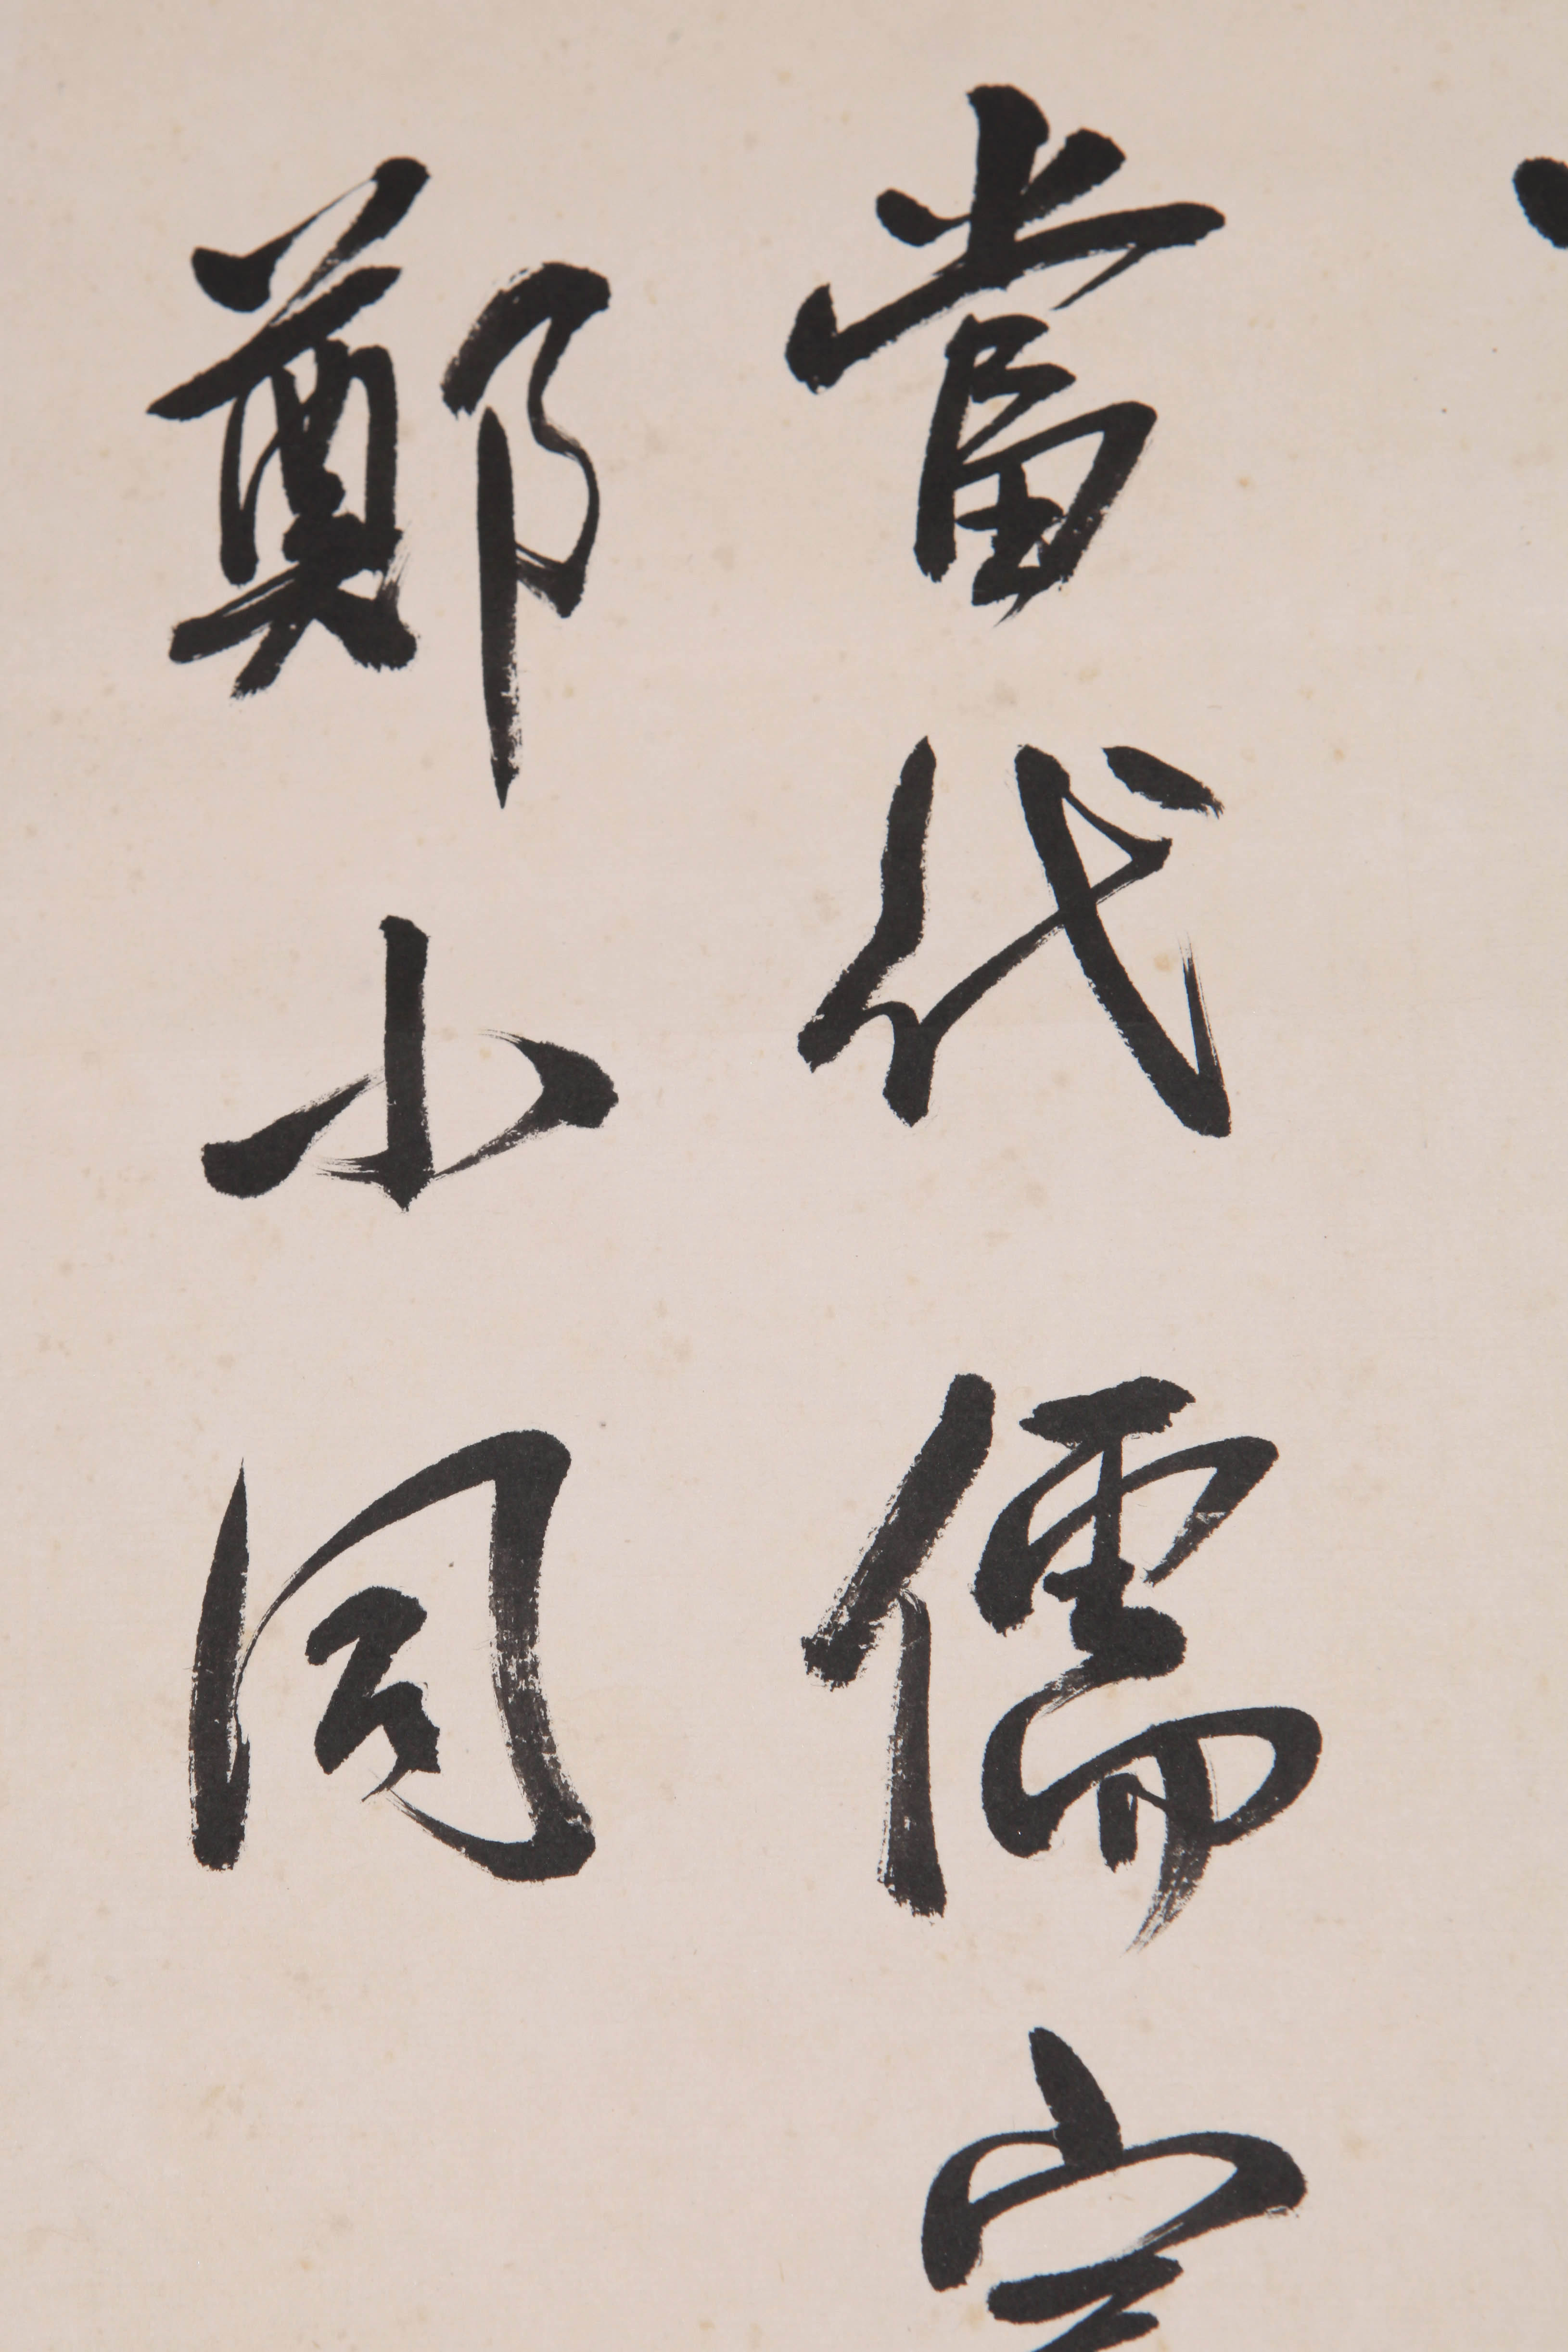 當代儒宗
鄭小同